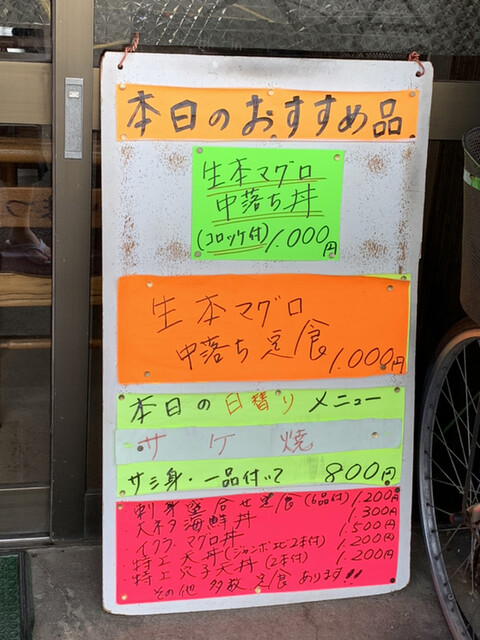 本日のおすすめ品
生本マグロ
中落ち丼
(コロッケ付) 1.000円
生本マグロ
中落ち定食
1.000円
本日の日替りメニュー
サケ焼
サミ身・一品付いて 800円
・刺身盛合せ定食 (6品付) 1.200円
・大ネタ海鮮丼 1.300円
・イクラ・マグロ丼 1.500円
・特上天丼 (ジャンボエビ2本付) 1.200円
・特上穴子天丼 (2本付) 1.200円
その他多数定食あります!!